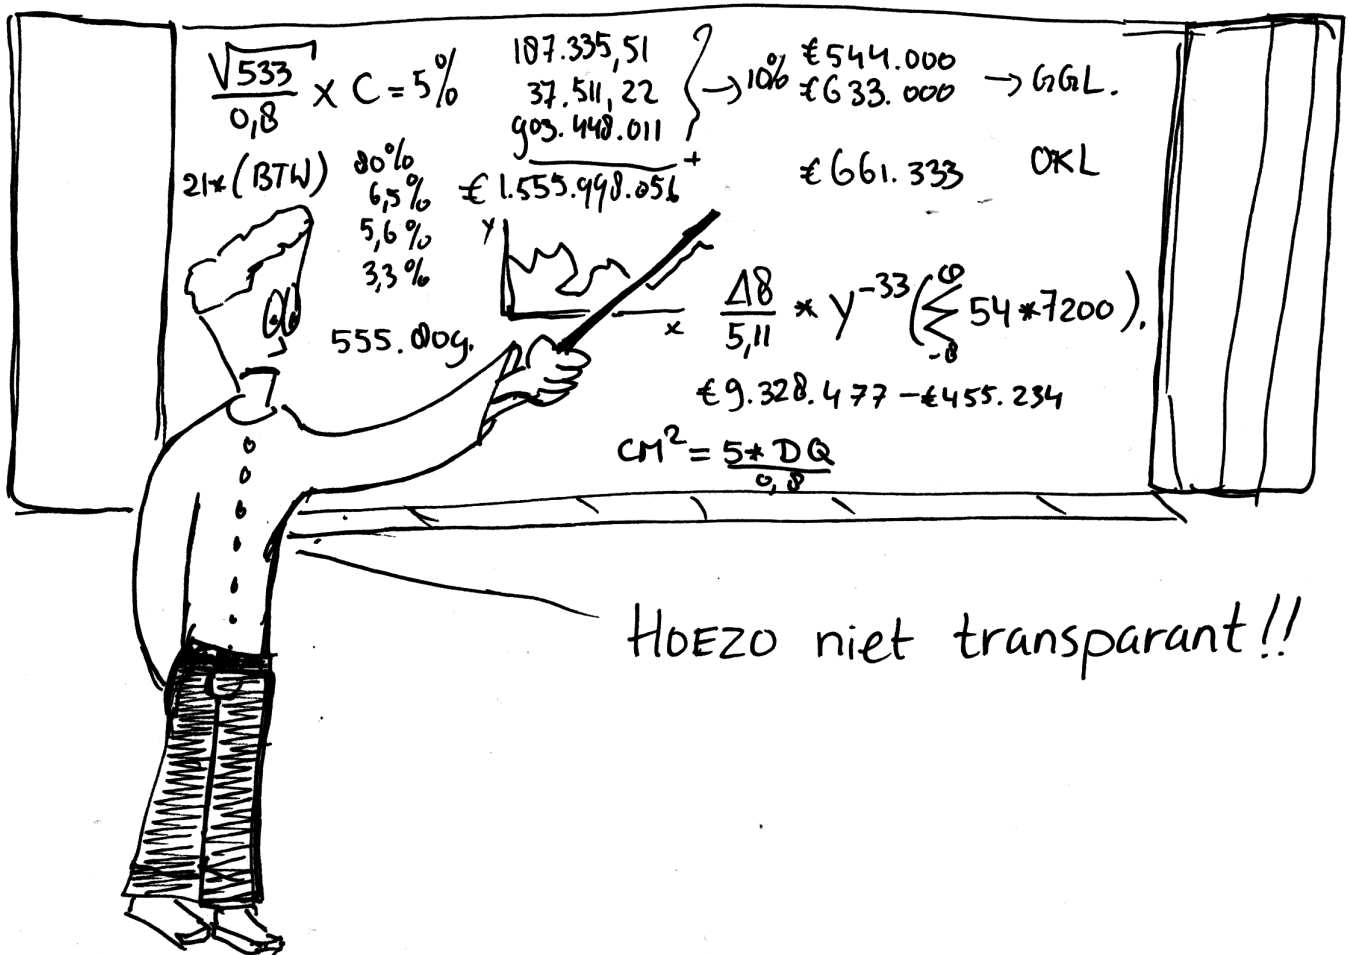 √533 / 0,8 x C = 5%
187.335,51
37.511,22
903.448.011
+
€ 1.555.998.056
→ 10% €544.000
€633.000 → GGL.
€661.333 OKL
21* (BTW) 80%
6,5%
5,6%
3,3%
555.
y
x
Δ8 / 5,11 * y⁻³³ (∑ 54 * 7200).
-8
€9.328.477 – €455.234
CM² = 5* DQ / 0,8
HOEZO niet transparant!!